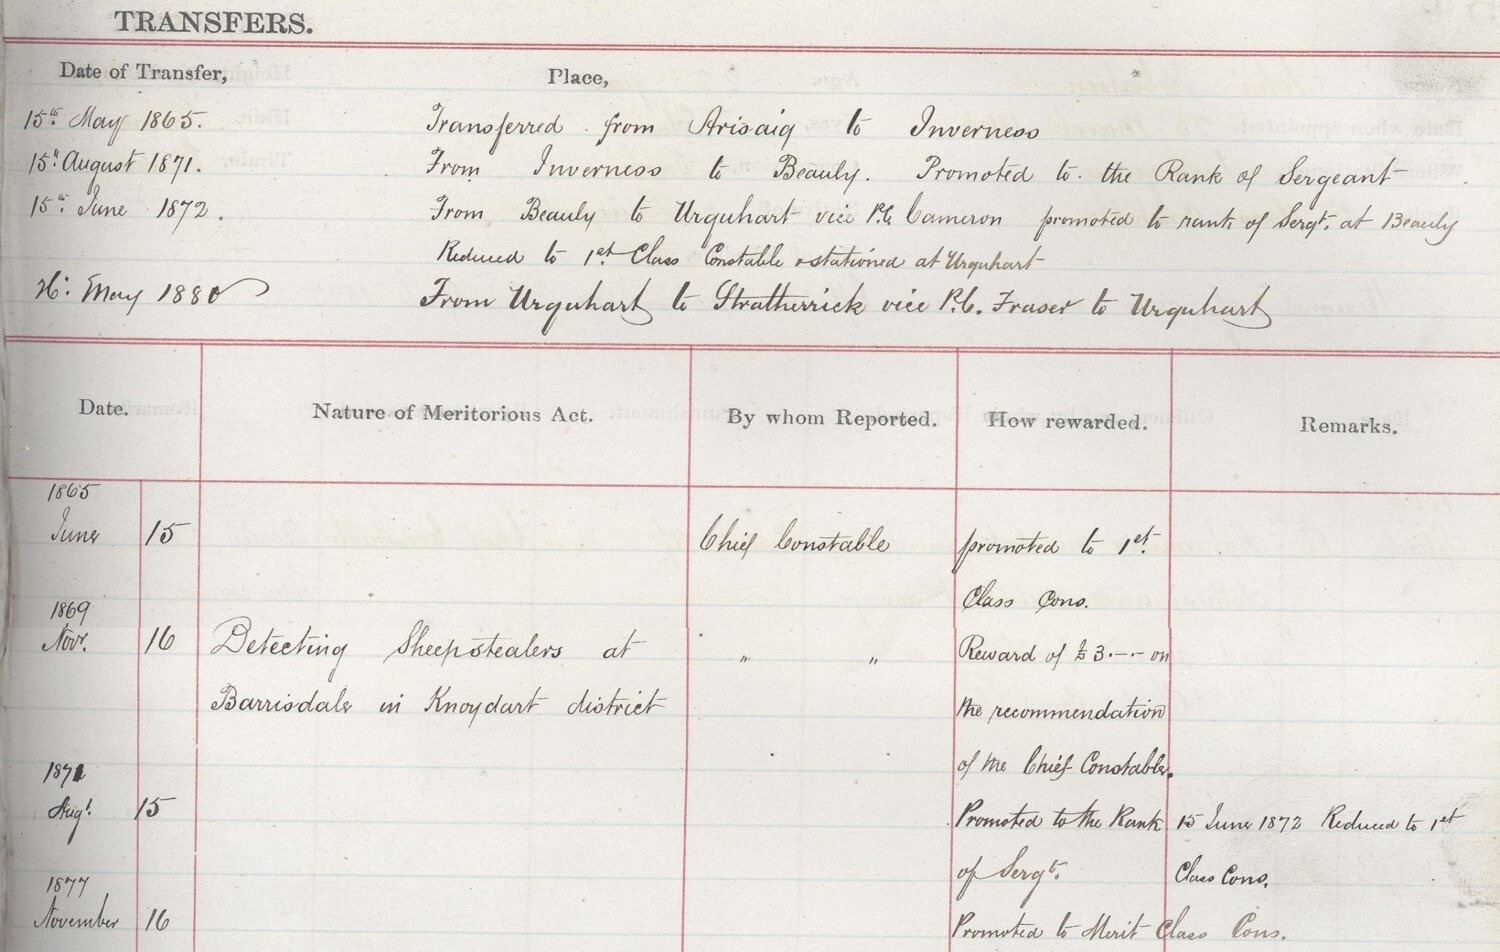 TRANSFERS.
Date of Transfer, Place,
15th May 1865. Transferred from Arisaig to Inverness
15th August 1871. From Inverness to Beauly. Promoted to the Rank of Sergeant
15th June 1872. From Beauly to Urquhart vice P.C. Cameron promoted to rank of Sergt. at Beauly
Reduced to 1st Class Constable & stationed at Urquhart
May 1880 From Urquhart to Stratherrick vice P.C. Fraser to Urquhart
Date. Nature of Meritorious Act. By whom Reported. How rewarded. Remarks.
1865
June 15 Chief Constable promoted to 1st
Class Cons.
1869
Novr. 16 Detecting Sheepstealers at " " Reward of £3.-.- on
Barrisdale in Knoydart district the recommendation
of the Chief Constable.
1871
Augt. 15 Promoted to the Rank 15 June 1872 Reduced to 1st
of Sergt. Class Cons.
1877
November 16 Promoted to Merit Class Cons.